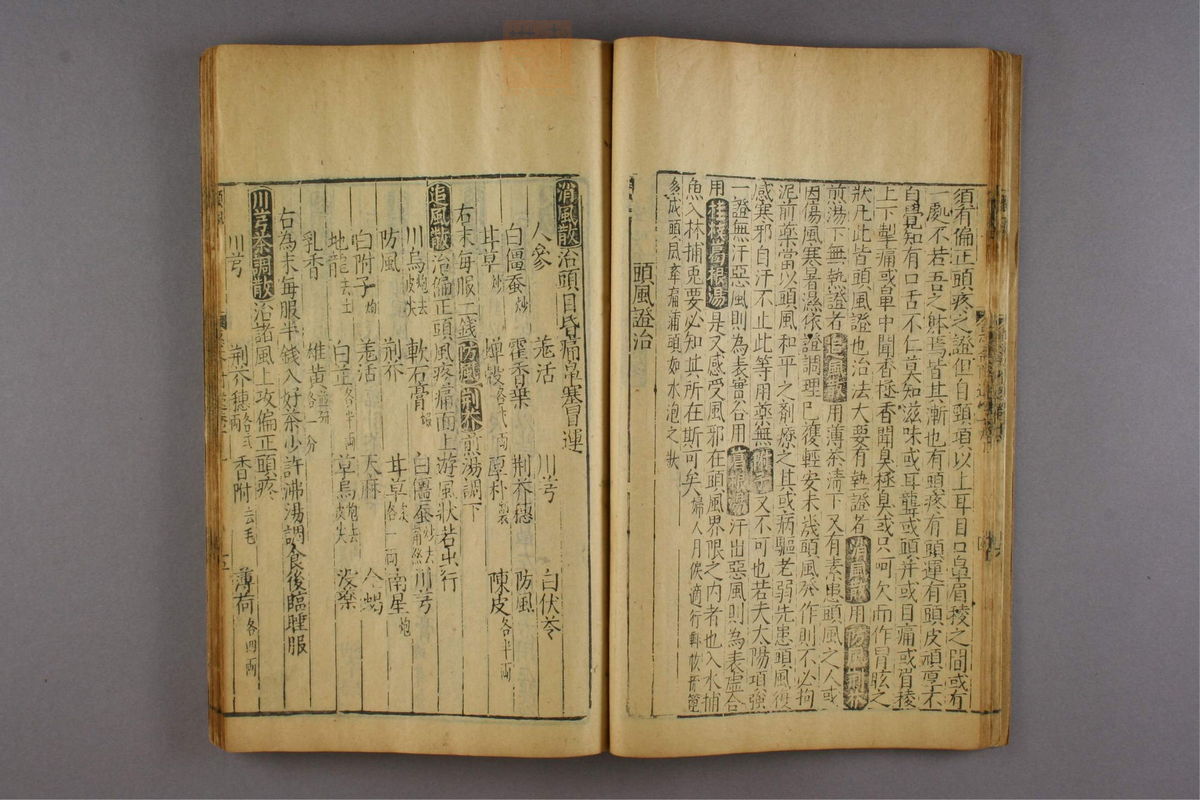 須有偏正頭疼之證但自頸項以上耳目口鼻眉稜之間或有
一處不若吾之躰焉皆其漸也有頭疼有頭運有頭皮頑厚不
自覺知有口舌不仁莫知滋味或耳聾或頭并或目痛或眉稜
上下掣痛或鼻中聞香極香聞臭極臭或只呵欠而作冒眩之
狀凡此皆頭風證也治法大要有熱證者消風散用防風荊芥
煎湯下無熱證者追風散用薄茶清下又有素患頭風之人或
因傷風寒暑濕依證調理已獲輕安未幾頭風發作則不必拘
泥前藥當以頭風和平之劑療之其或病軀老弱先患頭風後
感寒邪自汗不止此等用藥無附子又不可也若夫太陽項強
一證無汗惡風則為表實合用葛根湯汗出惡風則為表虛合
用桂枝葛根湯是又感受風邪在頭風界限之內者也入水捕
魚入林捕兎要必知其所在斯可矣婦人月候適行
多成頭風痛頭如水泡之狀
頭風證治
消風散治頭目昏痛鼻塞冒運
人參 羗活 川芎 白伏苓
白僵蚕炒 藿香葉 荊芥穗 防風
甘草炒 蟬殼各弍兩 厚朴製 陳皮各半兩
右末每服二錢防風荊芥煎湯調下
追風散治偏正頭風疼痛面上游風狀若虫行
川烏炮去皮尖 軟石膏煅 白僵蚕炒去絲 川芎
防風 荊芥 甘草炙各一兩 南星炮
白附子炮 羗活 天麻 全蝎
地龍去土 白芷各半兩 草烏炮去皮尖 沒藥
乳香 雄黃並研各一分
右為末每服半錢入好茶少許沸湯調食後臨睡服
川芎茶調散治諸風上攻偏正頭疼
川芎 荊芥穗各弍兩 香附去毛 薄荷各四兩